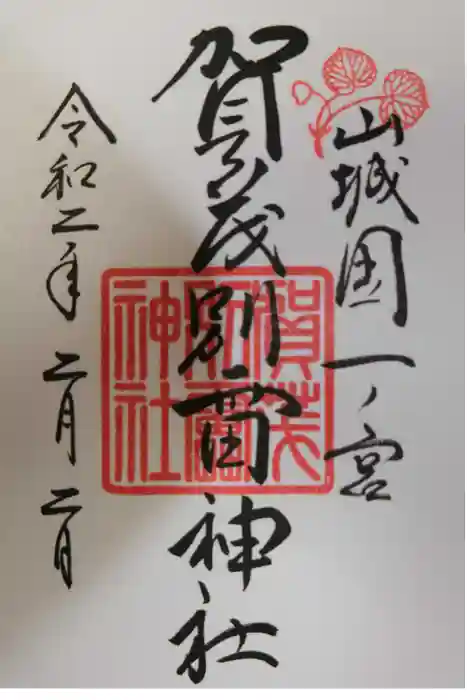 山城国一ノ宮
賀茂別雷神社
令和二年 二月 二日
賀茂
別雷
神社